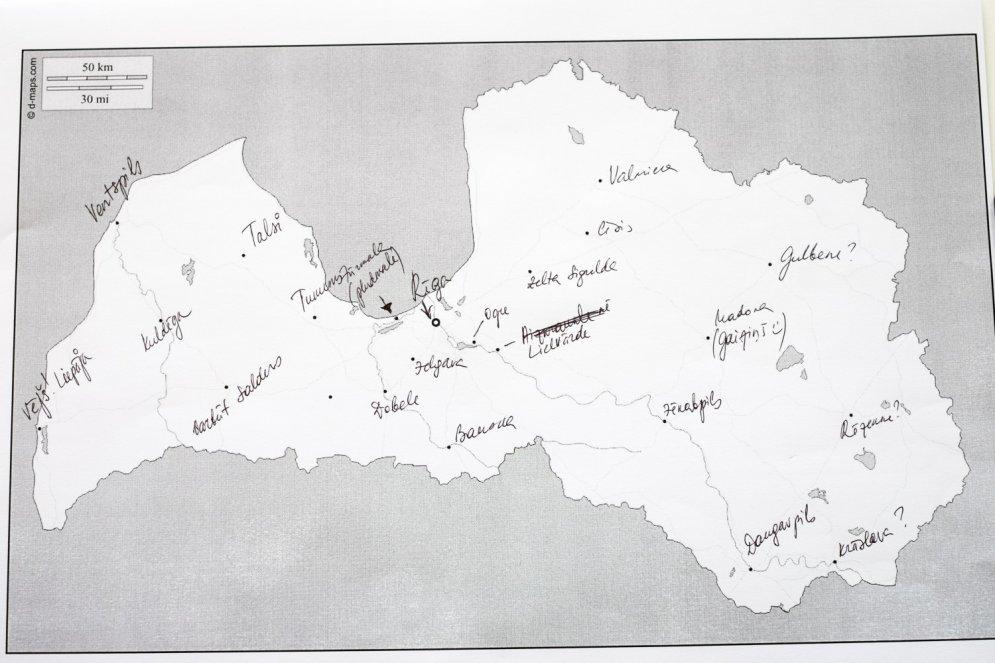 © d-maps.com
50 km
30 mi
Ventspils
Valmiera
Talsi
Cēsis
Jūrmala
(pludmale)
Gulbene?
Zelta Sigulda
Rīga
Kuldīga
Ogre
Madona
(Gaiziņš)
Lielvārde
Vējš! Liepāja
Jelgava
Saldus
Dobele
Jēkabpils
Rēzekne?
Bauska
Daugavpils
Krāslava?